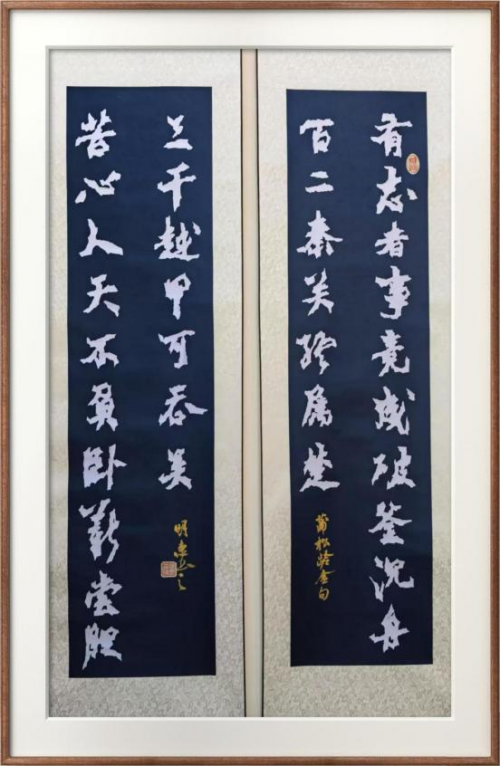 有志者事竟成破釜沉舟
百二秦关终属楚
蒲松龄金句
苦心人天不負卧薪尝胆
三千越甲可吞吴
明